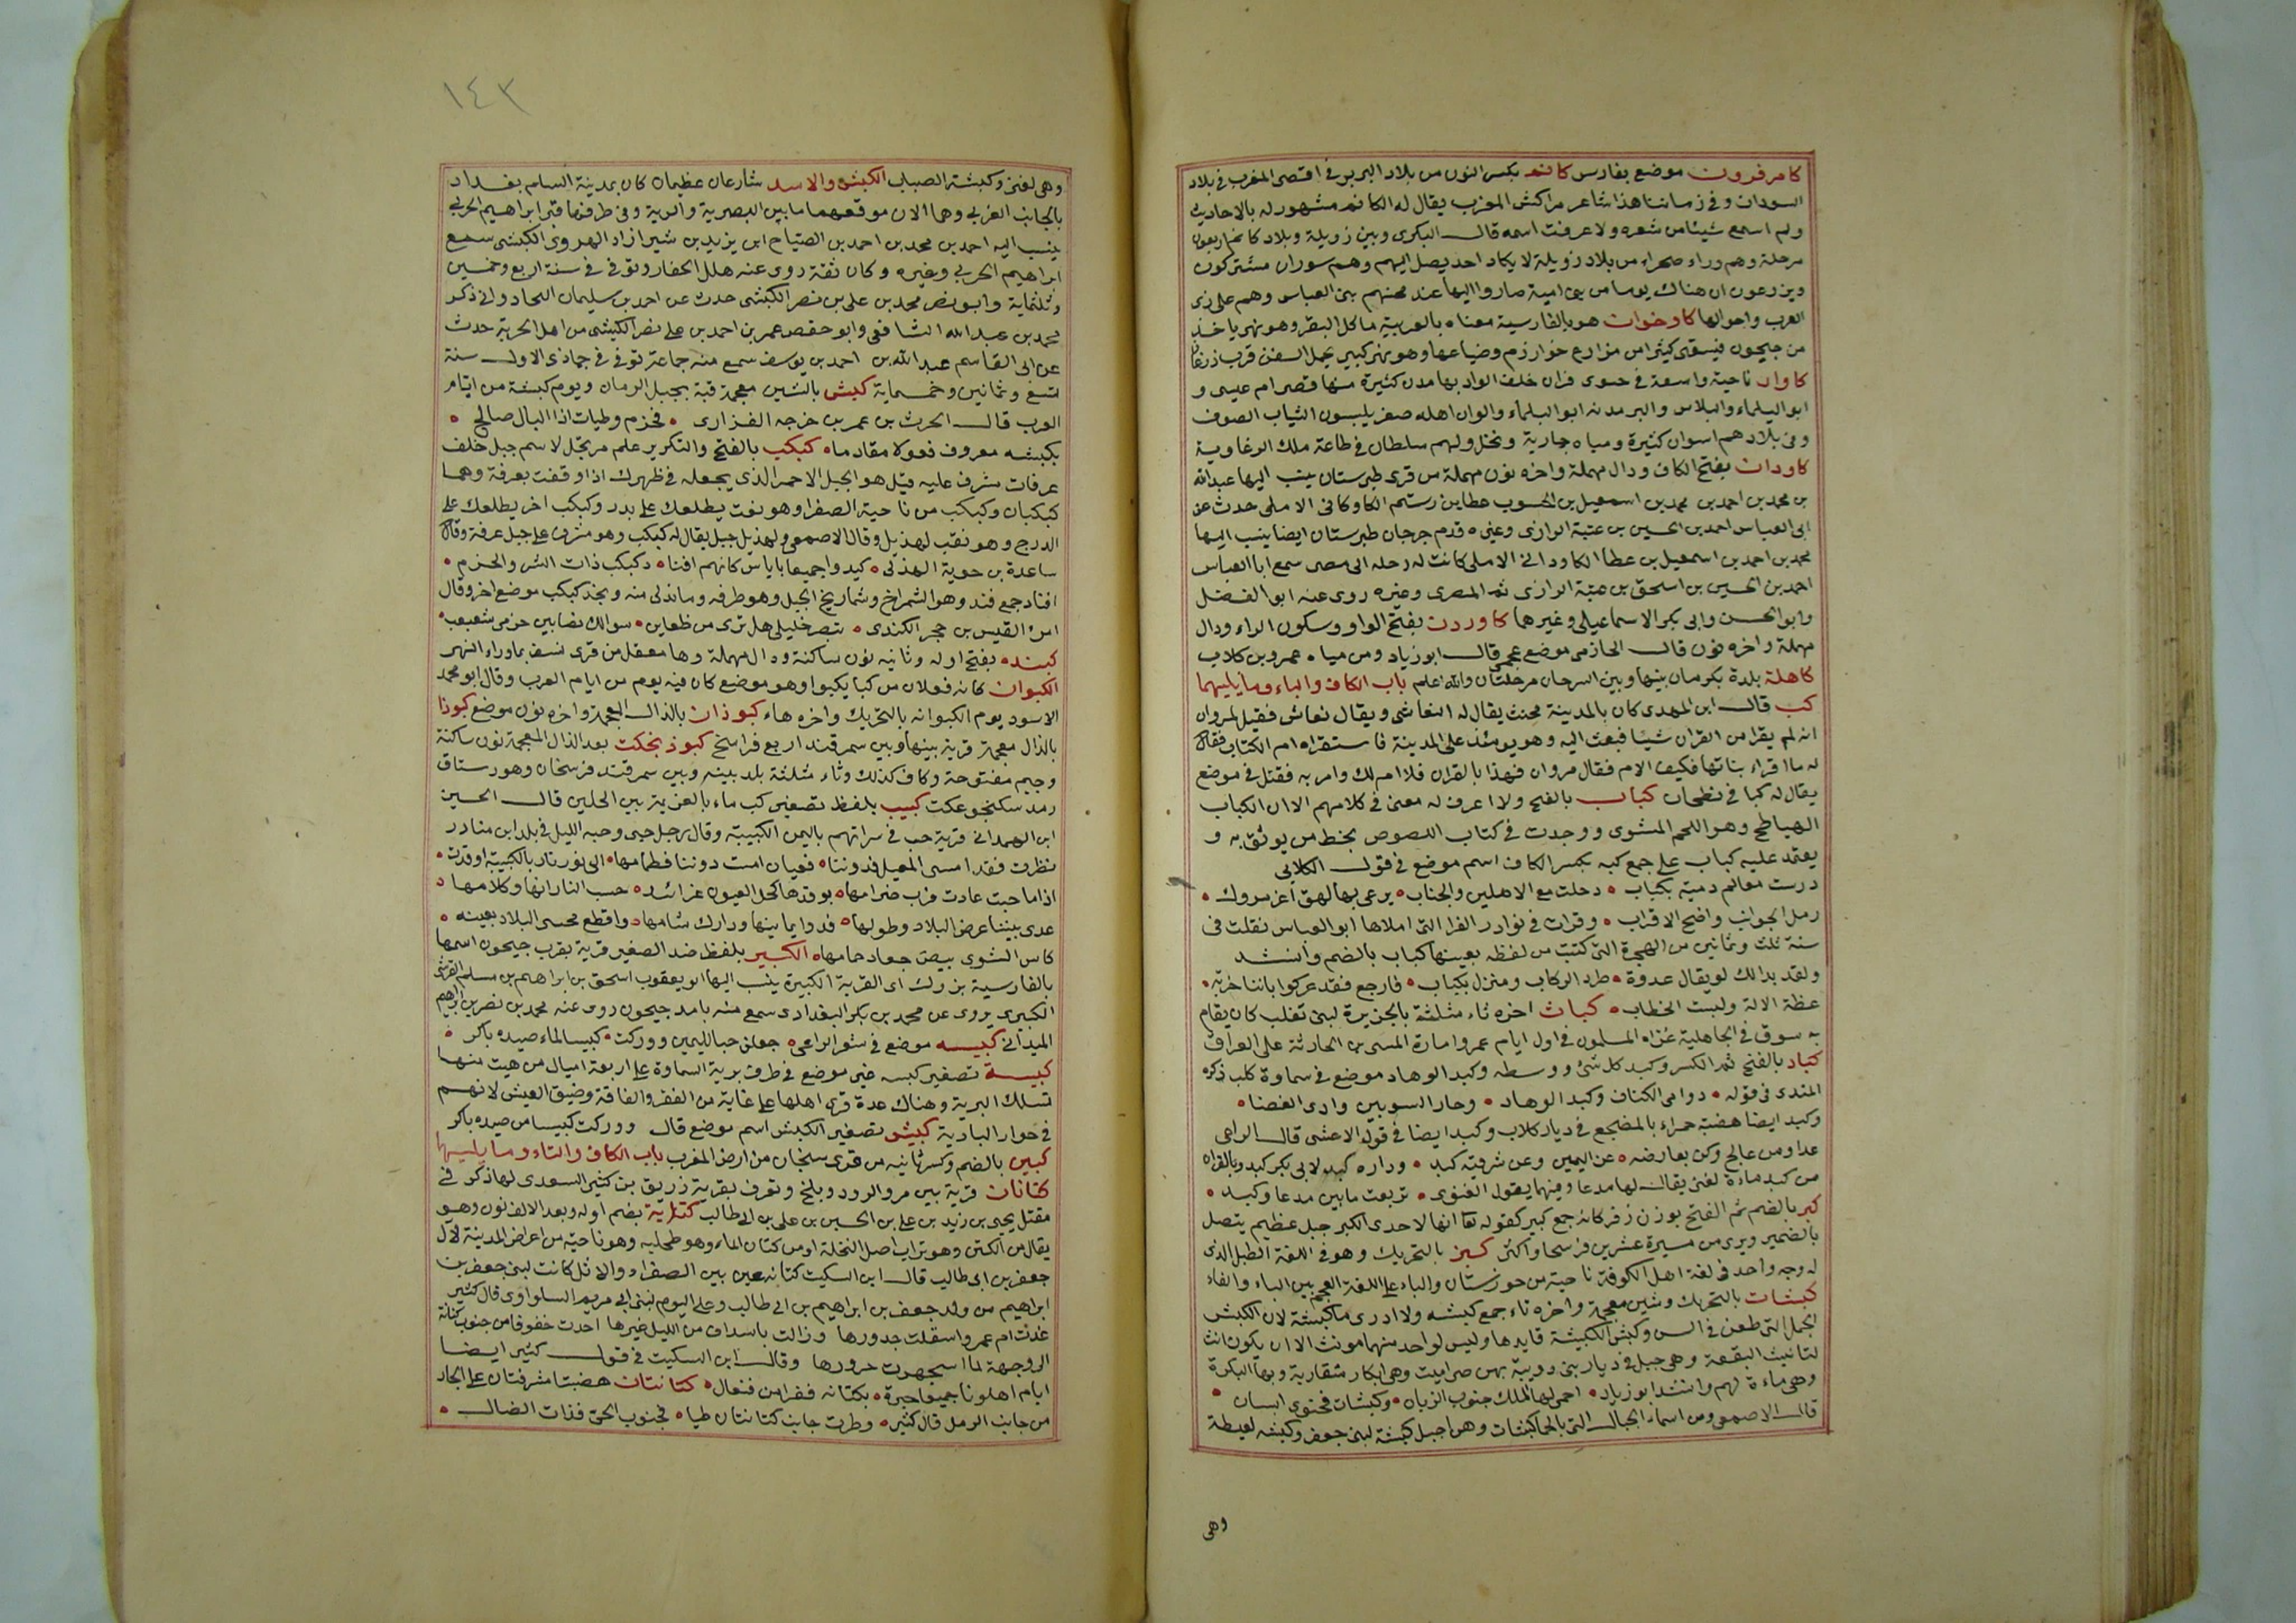 كامرفرون موضع بفارس كانم بكسر النون من بلاد البربر في اقصى المغرب في بلاد
السودان وفي زماننا هذا شاعر مراكش المغرب يقال له الكانمي مشهور له بالاحاديث
ولم اسمع شيئا من شعره ولا عرفت اسمه قال البكري وبين زويلة وبلاد كانم اربعون
مرحلة وهم وراء صحراء من بلاد زويلة لا يكاد احد يصل اليهم وهم سودان مشتركون
ويزعمون ان هناك يوما من بني امية صاروا اليها عند محنتهم ببني العباس وهم على زي
العرب واحوالها كاوخوات هو بالفارسية معناه بالعربية ماكل البقر وهو نهر ياخذ
من جيحون فيسقي كثيرا من مزارع خوارزم وضياعها وهو نهر كبير يحمل السفن قرب
كاوار ناحية واسعة في جنوبي فزان خلف الواد بها مدن كثيرة منها قصر ام عيسى و
ابو البلماء والبلاس والبر مدنه ابو البلماء والوان اهله صفر يلبسون الثياب الصوف
وفي بلادهم اسواق كثيرة ومياه جارية ونخل ولهم سلطان في طاعة ملك الزغاوية
كاودان بفتح الكاف ودال مهملة واخره نون مهملة من قرى طبرستان ينسب اليها عبد الله
بن محمد بن احمد بن محمد بن اسمعيل بن عطا بن رستم الكاوكاني الاملي حدث عن
ابي العباس احمد بن الحسين بن عتبة الرازي وغيره قدم جرجان طبرستان ايضا ينسب اليها
محمد بن احمد بن اسمعيل بن عطا الكاوداني الاملي كانت له رحله الى مصر سمع ابا العباس
احمد بن الحسين بن اسحق بن عتبة الرازي ثم المصري وغيره روى عنه ابو الفضل
وابو الحسن وابي بكر الاسماعيلي وغيرهما كاوردن بفتح الواو وسكون الراء ودال
مهملة واخره نون قال الحازمي موضع عجمي قال ابو زياد ومن مياه عمرو بن كلاب
كاهلة بلدة بكرمان بينها وبين السرجان مرحلتان والله اعلم باب الكاف والباء وما يليهما
كب قال ابن المهدي كان بالمدينة مخنث يقال له النغاشي ويقال نغاش فقيل لمروان
انه لم يقرا من القران شيئا فبعث اليه وهو يومئذ على المدينة فاستقراه ام الكتاب فقال
له ما اقراء بناتها فكيف الام فقال مروان فهذا بالقران فلا ام لك وامر به فقتل في موضع
يقال له كبا في بطحان كباب بالفتح ولا اعرف له معنى في كلامهم الا ان الكباب
الهباطج وهو اللحم المشوي ووجدت في كتاب اللصوص بخط من يوثق به و
يعتمد عليه كباب على جمع كبه بكسر الكاف اسم موضع في قول الكلابي
درست معالم دمية بكباب ۰ دخلت مع الاهلين والجناب ۰ يرعى بها لهق اغر مبروك ۰
رمل الجوانب واضح الاقراب ۰ وقرات في نوادر الفرا التي املاها ابو العباس نقلت في
سنة ثلث وثمانين من الهجرة التي كتبت من لفظه بعينها كباب بالضم وأنشد
ولقد بدا لك لو يقال عدوة ۰ طرد الركاب ومنزل بكباب ۰ فارجع فقد عركوا باننا خزية ۰
عظة الالة ولبست الخطاب ۰ كباث اخره ثاء مثلثة بالجزيرة لبني تغلب كان يقام
به سوق في الجاهلية غزاه المسلمون في اول ايام عمر وامارة المثنى بن الحارثة على العراق
كباد بالفتح ثم الكسر وكبد كل شئ ووسطه وكبد الوهاد موضع في سماوة كلب ذكره
المتنبي في قوله ۰ دوامي الكفاف وكبد الوهاد ۰ وحار السويين وادي الغضا ۰
وكبد ايضا هضبة حمراء بالمضجع في ديار كلاب وكبد ايضا في قول الاعشى قال الراعي
عدا ومن عالج ركن يعارضه ۰ عن اليمين وعن شرقيه كبد ۰ وداره كبد لابي بكر كبد وبالقراه
من كبد ماءة لغنى يقال لها مدعا وفيها يقول الغنوي ۰ تربعت ما بين مدعا وكبد ۰
كبر بالضم ثم الفتح بوزن زفر كانه جمع كبير كقوله تعا انها لاحدى الكبر جبل عظيم يتصل
بالضمير ويرى من مسيرة عشرين فرسخا واكثر كبر بالتحريك وهو في اللغة الطبل الذي
له وجه واحد في لغة اهل الكوفة ناحية من خوزستان والباء على اللغة العجم بين الباء والفاء
كبشات بالتحريك وشين معجمة واخره تاء جمع كبشه ولا ادري ما كبشة لان الكبش
الحمل التي طعن في السن وكبش الكتيبة قايدها وليس لواحد منهما مونث الا ان يكون انث
لتانيث البقعة وهي جبل في ديار بني ذويبة بهن هراميت وهي ابكار متقاربة وبها البكرة
وهي ماءة لهم وانشد ابو زياد ۰ احمى لها الملك جنوب الريان ۰ وكبشات فجنوبي ابسان ۰
قال الاصمعي ومن اسماء الجبال التي بالحما كبشات وهن اجبل كبشة لبني جعفر وكبشه لغيطة
وهي
١٤٣
وهي لغنى وكبشة الضباب الكبش والاسد شارعان عظيمان كان بمدينة السلام بغداد
بالجانب الغربي وهما الان موقعهما ما بين البصرية والبرية وفي طرفها قبر ابراهيم الحربي
ينسب اليه احمد بن محمد بن احمد بن الصباح ابن يزيد بن شيرازاد الهروي الكبشي سمع
ابراهيم الحربي وغيره وكان ثقة روى عنه هلال الحفار وتوفي في سنة اربع وخمسين
وثلثماية وابو نصر محمد بن علي بن نصر الكبشي حدث عن احمد بن سليمان النجاد وابي ذكر
محمد بن عبد الله الشافعي وابو حفص عمر بن احمد بن علي نصر الكبشي من اهل الحربية حدث
عن ابي القاسم عبد الله بن احمد بن يوسف سمع منه جماعة توفي في جمادى الاول سنة
تسع وثمانين وخمسماية كبش بالشين معجمة قبة بجبل الرمان ويوم كبشة من ايام
العرب قال الحرث بن عمر بن خرجه الفزاري ۰ فخزم وطيات اذا البال صالح ۰
بكبشه معروف فغولا مقادما ۰ كبكب بالفتح والتكرير علم مرتجل لاسم جبل خلف
عرفات مشرف عليه قيل هو الجبل الاحمر الذي يجعله في ظهرك اذا وقفت بعرفة وهما
كبكبان وكبكب من ناحية الصفرا وهو نعت يطلعك على بدر وكبكب اخر يطلعك على
الدرج وهو نقب لهذيل وقال الاصمعي ولهذيل جبل يقال له كبكب وهو مشرف على جبل عرفة وقال
ساعدة بن جوية الهذلي ۰ كيدوا جميعا باناس كانهم افنا ۰ دكبكب ذات الشر والحزم ۰
افناد جمع فند وهو الشمراخ وشماريخ الجبل وهو طرفه وما تدلى منه وبنجد كبكب موضع اخر وقال
امرئ القيس بن حجر الكندي ۰ تبصر خليلي هل ترى من ظعاين ۰ سوالك نقبا بين حزمي شعبعب ۰
كبنده بفتح اوله وثانيه نون ساكنة ودال مهملة وها معقل من قرى نسف بماوراء النهر
الكبوان كانه فعلان من كبا يكبوا وهو موضع كان فيه يوم من ايام العرب وقال ابو محمد
الاسود يوم الكبوانه بالتحريك واخره هاء كبوذان بالذال المعجمة واخره نون موضع كبوذا
بالذال معجمة قرية بينها وبين سمرقند اربع فراسخ كبوذنجكث بعد الذال المعجمة نون ساكنة
وجيم مفتوحة وكاف كذلك وثاء مثلثة بلد بينه وبين سمرقند فرسخان وهو رستاق
رمد سكنجوعكث كبيب بلفظ تصغير كب ماء بالعزيز بين الجبلين قال الحسين
ابن الهمداني قرية حب في سراتهم باليمن الكبيبة وقال رجل حبي وحبه الليل في بلد ابن منادر
نظرت فقد امسى المعيل فدوننا ۰ فعيان امت دوننا فطمامها ۰ الى نور نار بالكبيبة اوقدت ۰
اذا ما خبت عادت فزب ضرامها ۰ يوقدها كحل العيون غرائد ۰ حب النار انها وكلامها ۰
عدى بيننا عرض البلاد وطولها ۰ فدوا يمانينها ودارك شامها ۰ واقطع محسى البلاد بعينه ۰
كاس الشوى بيض جعاد حمامها ۰ الكبير بلفظ ضد الصغير قرية بقرب جيحون اسمها
بالفارسية بزرك اى القرية الكبيرة ينسب اليها ابو يعقوب اسحق بن ابراهيم بن مسلم القرشي
الكبيري يروي عن محمد بن بكر البغدادي سمع منه بامد جيحون روى عنه محمد بن نصر بن ابراهيم
الميداني كبيسه موضع في شعر الراعي ۰ جعلن حبا لليمين ووركت ۰ كبيسا لماء صيده باكر ۰
كبيسة تصغير كبسه غير موضع في طرف برية السماوة على اربعة اميال من هيت منها
تسلك البرية وهناك عدة قرى اهلها على غاية من الفقر والفاقة وضيق العيش لانهم
في جوار البادية كبيش تصغير الكبش اسم موضع قال ووركت كبيسا من صيده باكر
كبين بالضم وكسر ثانيه من قرى سنجان من ارض المغرب باب الكاف والتاء وما يليهما
كتانات قرية بين مرو الرود وبلخ وتعرف بقرية زريق بن كثير السعدي لها ذكر في
مقتل يحيى بن زيد بن علي بن الحسين بن علي بن ابي طالب كتانة بضم اوله وبعد الالف نون وهو
يقال من الكتن وهو تراب اصل النخلة او من كتان الماء وهو طحلبه وهو ناحية من اعراض المدينة لال
جعفر بن ابي طالب قال ابن السكيت كتانه عين بين الصفراء والاثل كانت لبني جعفر بن
ابراهيم من ولد جعفر بن ابراهيم بن ابي طالب وعلى اليوم لبني ابي مريم السلواوي قال كثير
غدت ام عمرو استقلت جدورها وزالت باسداف من الليل غيرها احدت خفوفا من جنوب كتانة
الى وجهة لما اسجهرت حرورها وقال ابن السكيت في قول كثير ايضا
ايام اهلونا جميعا جيرة ۰ بكتانه ففراقد فنعال ۰ كتانتان هضبتا مشرفتان على الجار
من جانب الرمل قال كثير ۰ وطرت جانب كتانتان طيا ۰ فجنوب الحي فذات الضال ۰